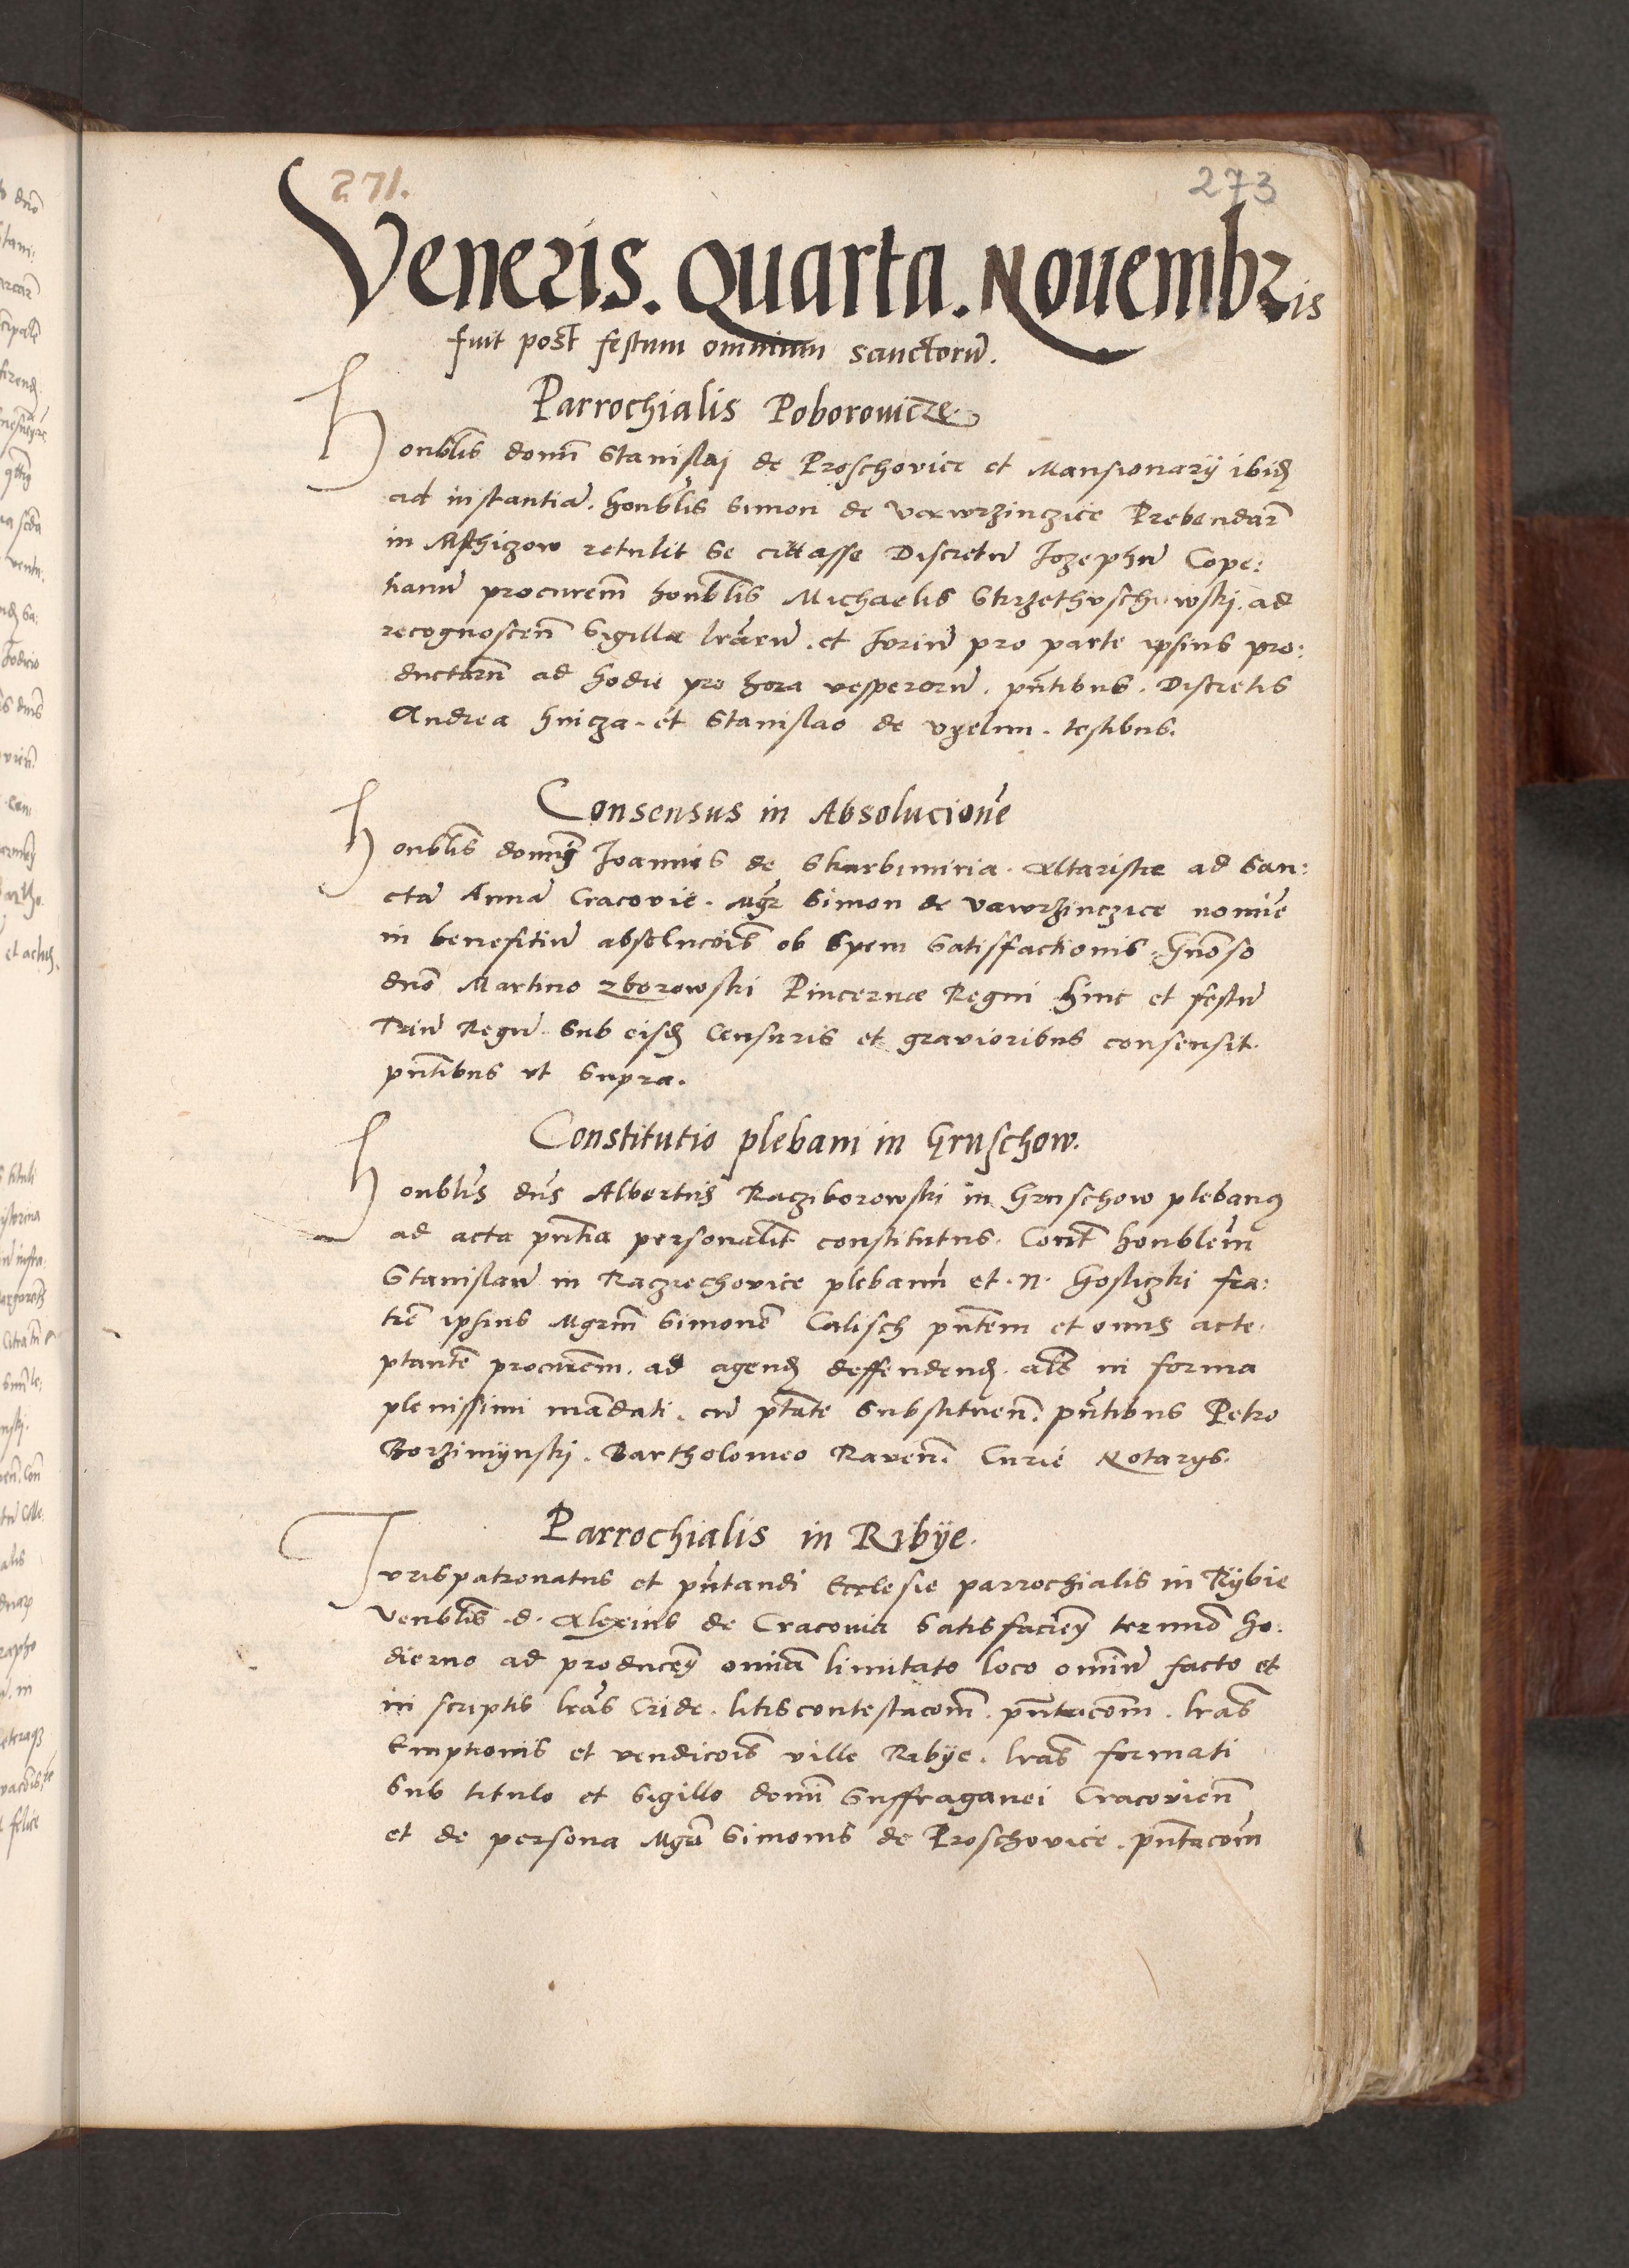 271.
273
Veneris. Quarta. Nouembris
fuit post festum omnium sanctorũ.
Parrochialis Poborovicze
Honblis domĩ Stanislaj de Proschovice et Mansionarÿ ibid
ad instantiã. honblis Simon de Vawrzinczice Prebendar̃
in Msthiczow retulit se cittasse Discretũ Jozephũ Cope:
nanũ procurem̃ honblis Michaelis ad
recognoscen̄ Sigilla lrãrũ. et Joriũ pro parte ipsius pro:
ductarũ ad hodie pro hora vesperorũ. pn̄tibus. Discretis
Andrea hnicza. et Stanislao de vyelun. testibus.
Consensus in Absolucionẽ
Honblis domĩ Joannis de Skarbimiria. Altariste ad San:
ctã Annã Cracoviẽ. Mgr̃ Simon de Vawrzinczice nomĩe
in benefitiũ absolucõis ob Spem Satisfactionis. Gnõso
dnõ Martino zborowski Pincernæ Regni hinc et festũ
Triũ Regũ. Sub eisd Censuris et gravioribus consensit.
pn̄tibus ut supra.
Constitutio plebani in Gruschow.
Honblis dn̄s Albertus Raczÿborowski in Gruschow plebanus
ad acta pn̄tia personalit̃ constitutus. Cons̃t honblem̃
Stanislaũ in Raczechovice plebanũ et. N. Gosliczki fra:
trẽ ipsius Mgrm̃ Simonẽ Calisch pn̄tem et onus acce:
ptantẽ procurem̃. ad agend deffendend. als̃ in forma
plenissimi mãdati. cũ ptate substituen̄. pn̄tibus Petro
Borzimÿnskj. Bartholomeo Raven̄. Curiẽ Notarÿs.
Parrochialis in Ribÿe.
Jurispatronatus et pn̄tandi Ecclesie parrochialis in Rÿbie
Venblis. d. Alexius de Cracovia Satisfacien̄ termĩo ho:
dierno ad producen̄ omĩa limitato loco omĩũ facto et
in scriptis lrãs Cride. litiscontestacõm. pn̄tacõm. lrãs
Emptionis et vendicõis ville Ribÿe. lrãs formati
Sub titulo et Sigillo domĩ Suffraganei Cracovien̄
et de persona Mgrĩ Simonis de Proschovice. pn̄tacõm